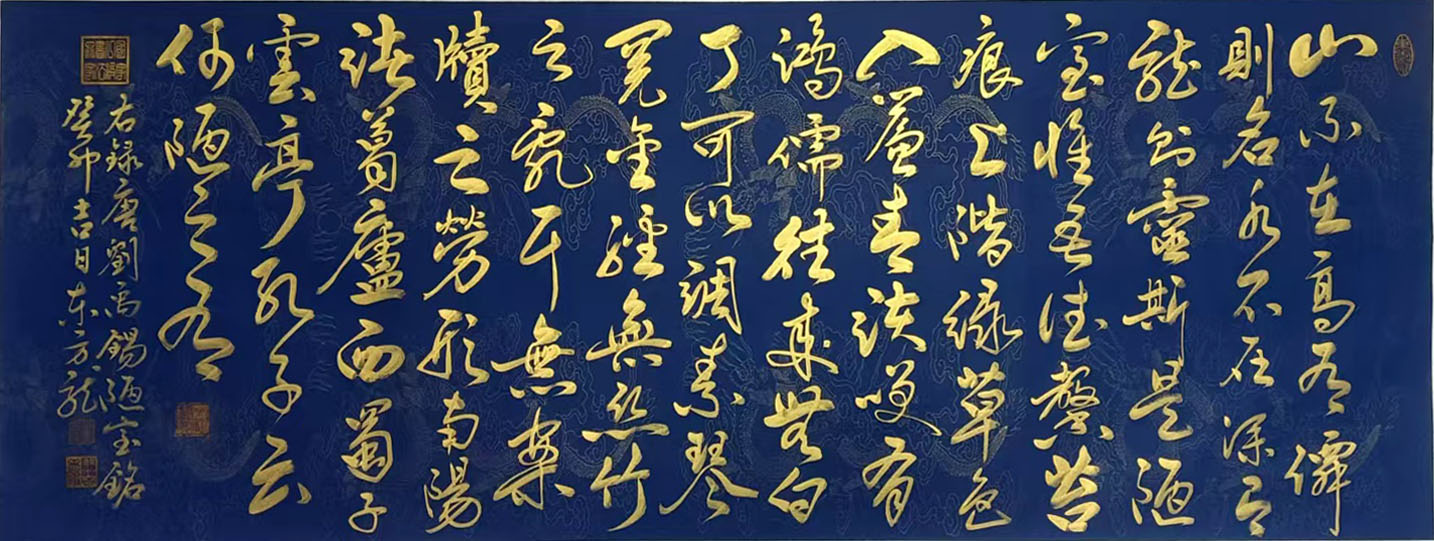 山不在高有僊
則名水不在深有
龍則靈斯是陋
室惟吾德馨苔
痕上階綠草色
入簾青談笑有
鴻儒往來無白
丁可以調素琴
閱金經無絲竹
之亂耳無案
牘之勞形南陽
諸葛廬西蜀子
雲亭孔子云
何陋之有
右録唐劉禹錫陋室銘
癸卯吉日东方龍